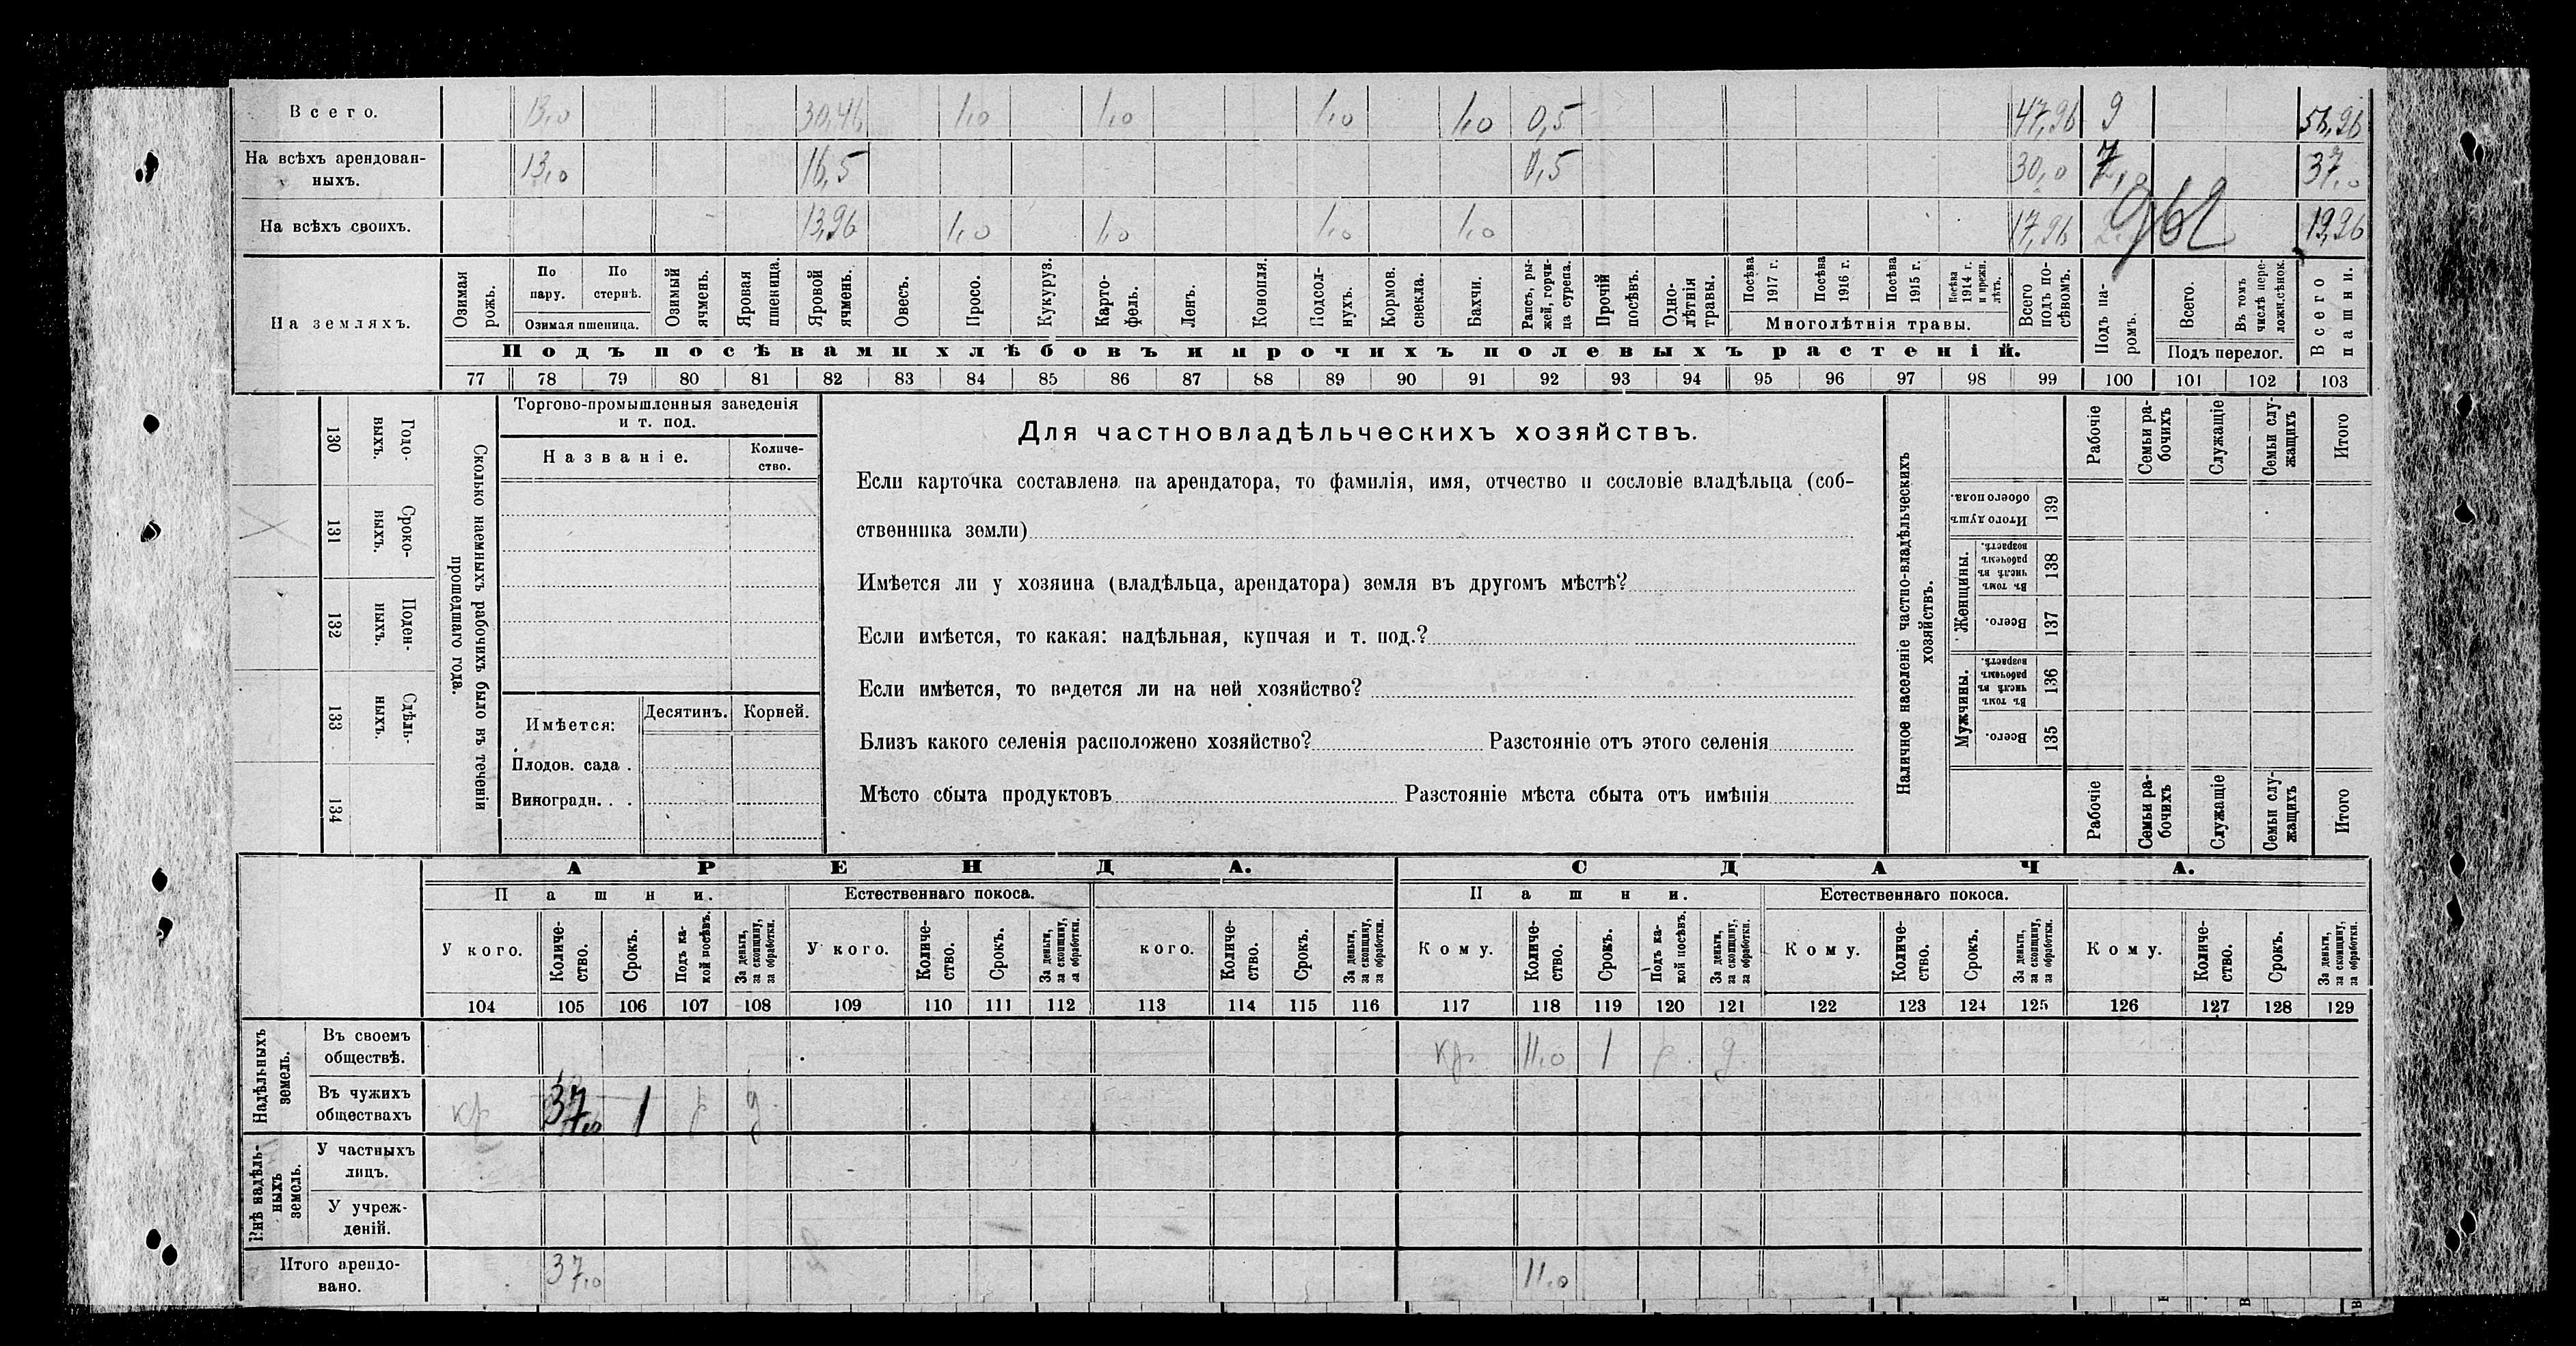 Всего. 13,0 30,46 1,0 1,0 1,0 1,0 0,5 47,96 9 56,96
На всѣхъ арендован-
ныхъ. 13,0 16,5 0,5 30,0 7,0 37,0
На всѣхъ своихъ. 13,96 1,0 1,0 1,0 1,0 17,96 19,96
962
На земляхъ.
Озимая рожь.
По пару.
По стернѣ.
Озимая пшеница.
Озимый ячмень.
Яровая пшеница.
Яровой ячмень.
Овесъ.
Просо.
Кукуруз.
Карто-
фель.
Ленъ.
Конопля.
Подсол-
нухъ.
Кормов. свекла.
Бахчи.
Рапсъ, ры-
жей, горчи-
ца сурепа.
Прочій посѣвъ.
Одно-
лѣтнія травы.
Посѣва 1917 г.
Посѣва 1916 г.
Посѣва 1915 г.
Посѣва 1914 г. и прежн. лѣтъ.
Многолѣтнія травы.
Всего подъ по-
сѣвомъ.
Подъ па-
ромъ.
Всего.
Въ томъ числѣ пере-
ложн.сѣнок.
Подъ перелог.
Всего пашни.
Подъ посѣвами хлѣбовъ и прочихъ полевыхъ растеній.
77 78 79 80 81 82 83 84 85 86 87 88 89 90 91 92 93 94 95 96 97 98 99 100 101 102 103
130 Годо-
выхъ.
131 Сроко-
выхъ.
132 Поден-
ныхъ.
133 Сдѣль-
ныхъ.
134
Сколько наемныхъ рабочихъ было въ теченіи
прошедшаго года.
Торгово-промышленныя заведенія
и т. под.
Названіе.
Количе-
ство.
Имѣется:
Десятинъ. Корней.
Плодов. сада .
Виноградн. . .
Для частновладѣльческихъ хозяйствъ.
Если карточка составлена на арендатора, то фамилія, имя, отчество и сословіе владѣльца (соб-
ственника земли)
Имѣется ли у хозяина (владѣльца, арендатора) земля въ другомъ мѣстѣ?
Если имѣется, то какая: надѣльная, купчая и т. под.?
Если имѣется, то ведется ли на ней хозяйство?
Близъ какого селенія расположено хозяйство? Разстояніе отъ этого селенія
Мѣсто сбыта продуктовъ Разстояніе мѣста сбыта отъ имѣнія
Наличное населеніе частно-владѣльческихъ
хозяйствъ.
Рабочіе
Семьи ра-
бочихъ
Служащіе
Семьи слу-
жащихъ
Итого
Итого душъ обоего пола. 139
Женщины.
Въ томъ числѣ въ рабочемъ возрастѣ. 138
Всего. 137
Мужчины.
Въ томъ числѣ въ рабочемъ возрастѣ. 136
Всего. 135
Рабочіе
Семьи ра-
бочихъ
Служащіе
Семьи слу-
жащихъ
Итого
АРЕНДА. СДАЧА.
Пашни. Естественнаго покоса. Пашни. Естественнаго покоса.
У кого.
Количе-
ство.
Срокъ.
Подъ ка-
кой посѣвъ.
За деньги, за скопщину, за обработки.
У кого.
Количе-
ство.
Срокъ.
За деньги, за скопщину, за обработки.
кого.
Количе-
ство.
Срокъ.
За деньги, за скопщину, за обработки.
Кому.
Количе-
ство.
Срокъ.
Подъ ка-
кой посѣвъ.
За деньги, за скопщину, за обработки.
Кому.
Количе-
ство.
Срокъ.
За деньги, за скопщину, за обработки.
Кому.
Количе-
ство.
Срокъ.
За деньги, за скопщину, за обработки.
104 105 106 107 108 109 110 111 112 113 114 115 116 117 118 119 120 121 122 123 124 125 126 127 128 129
Надѣльныхъ
земель.
Въ своемъ
обществѣ. кр. 11,0 1 р. д.
Въ чужихъ
обществахъ кр 37 1 р д
Внѣ надѣль-
ныхъ
земель.
У частныхъ
лицъ.
У учреж-
деній.
Итого арендо-
вано. 37,0 11,0